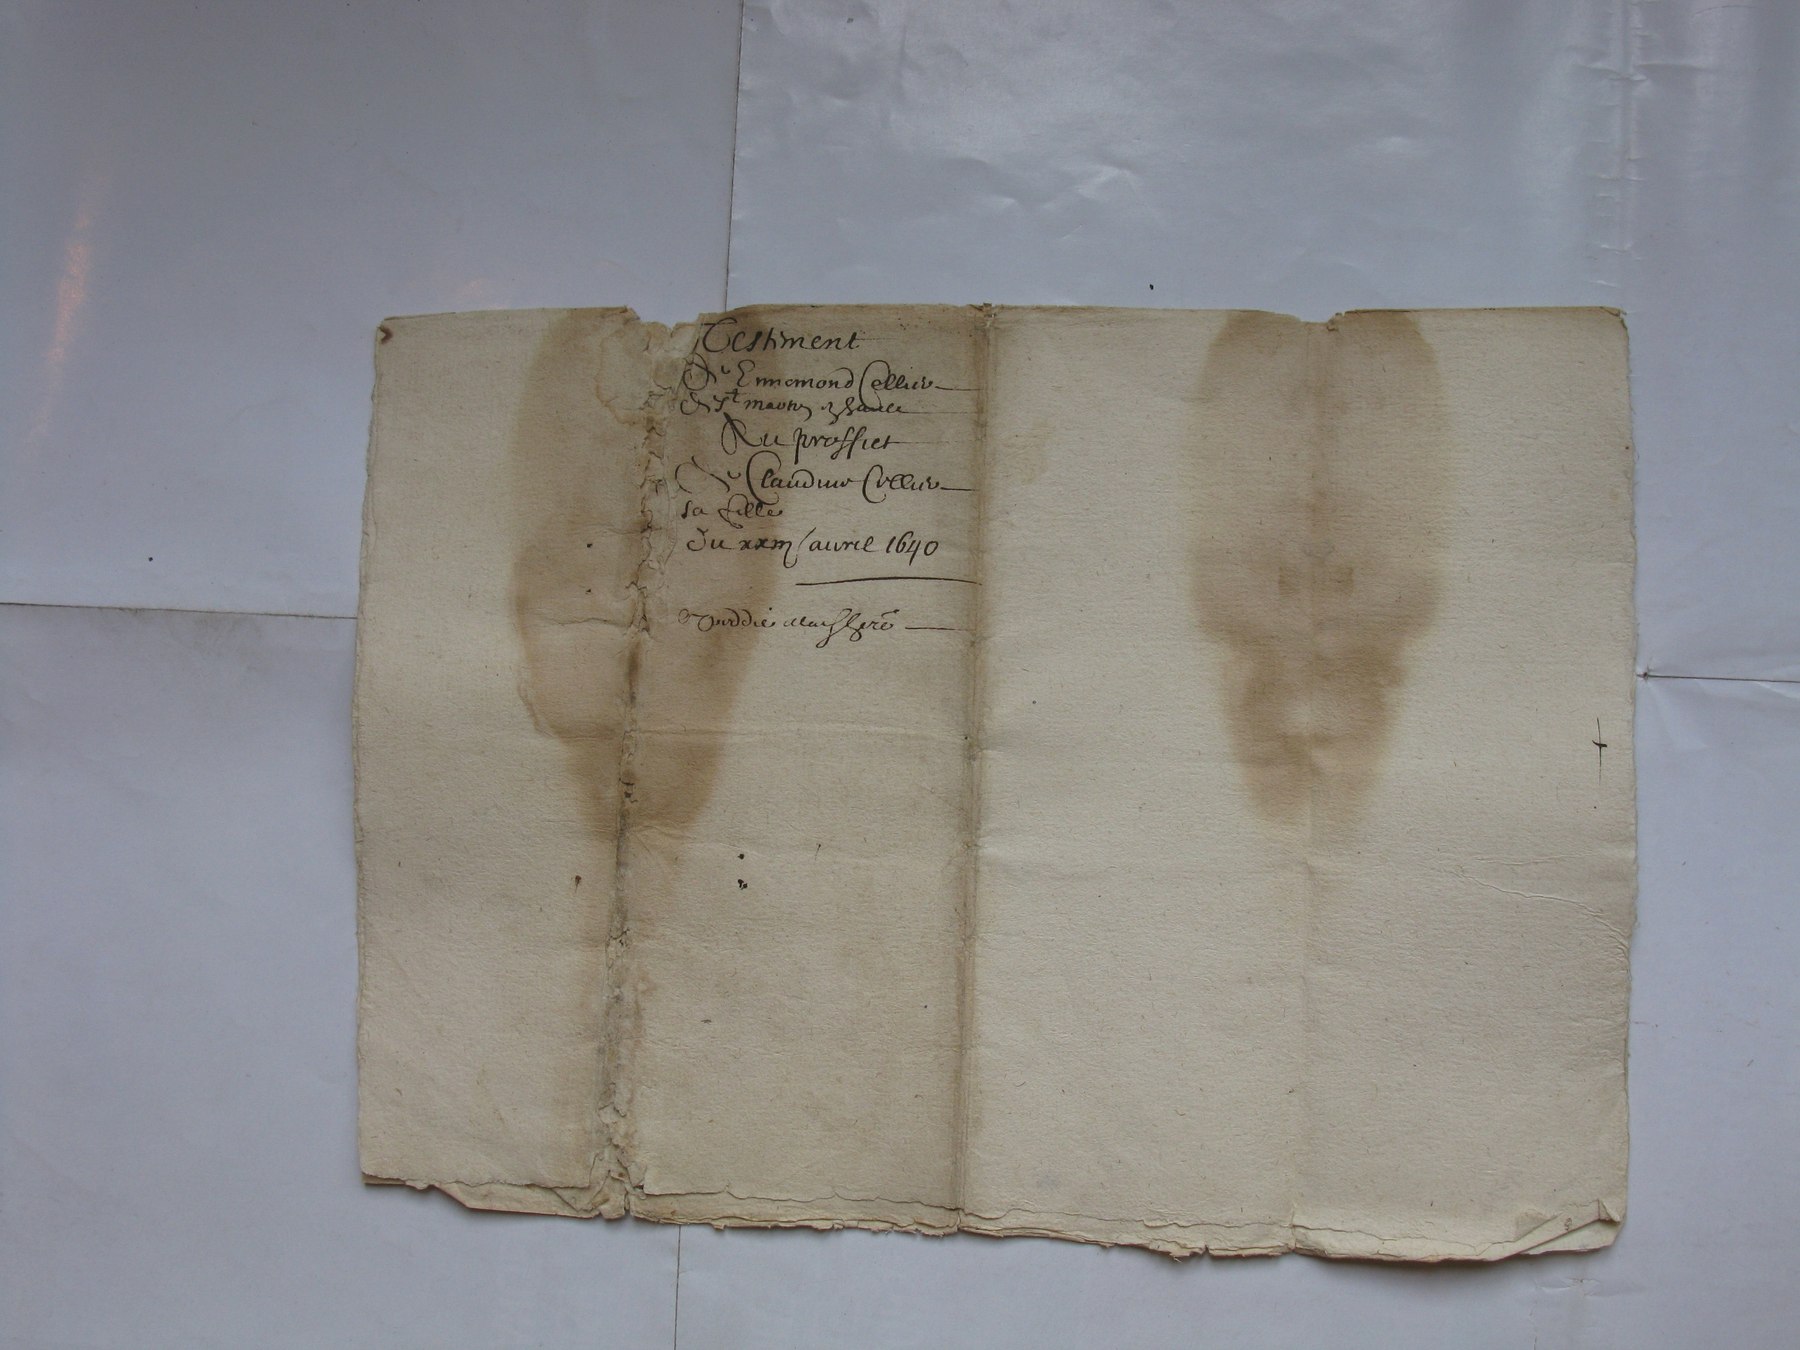 Testiment
De Ennemond Cellier
de St martin
Au proffict
De Claudine Cellier
sa fille
Du xxiii avril 1640